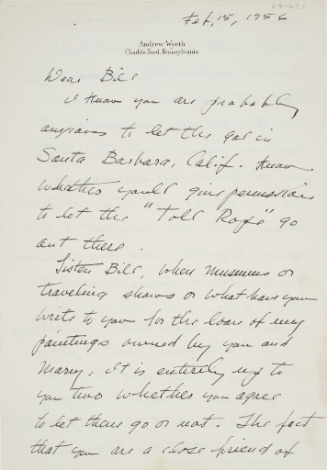 Feb, 15, 1956
Andrew Wyeth
Chadds Ford, Pennsylvania
Dear Bill
I know you are probably
anxious to let the gal in
Santa Barbara, Calif. know
whether you'll give permission
to let the "Toll Rope" go
out there.
Listen Bill, when museums or
traveling shows or what have you
write to you for the loan of my
paintings owned by you and
Mary, it is entirely up to
you two whether you agree
to let them go or not. The fact
that you are a close friend of